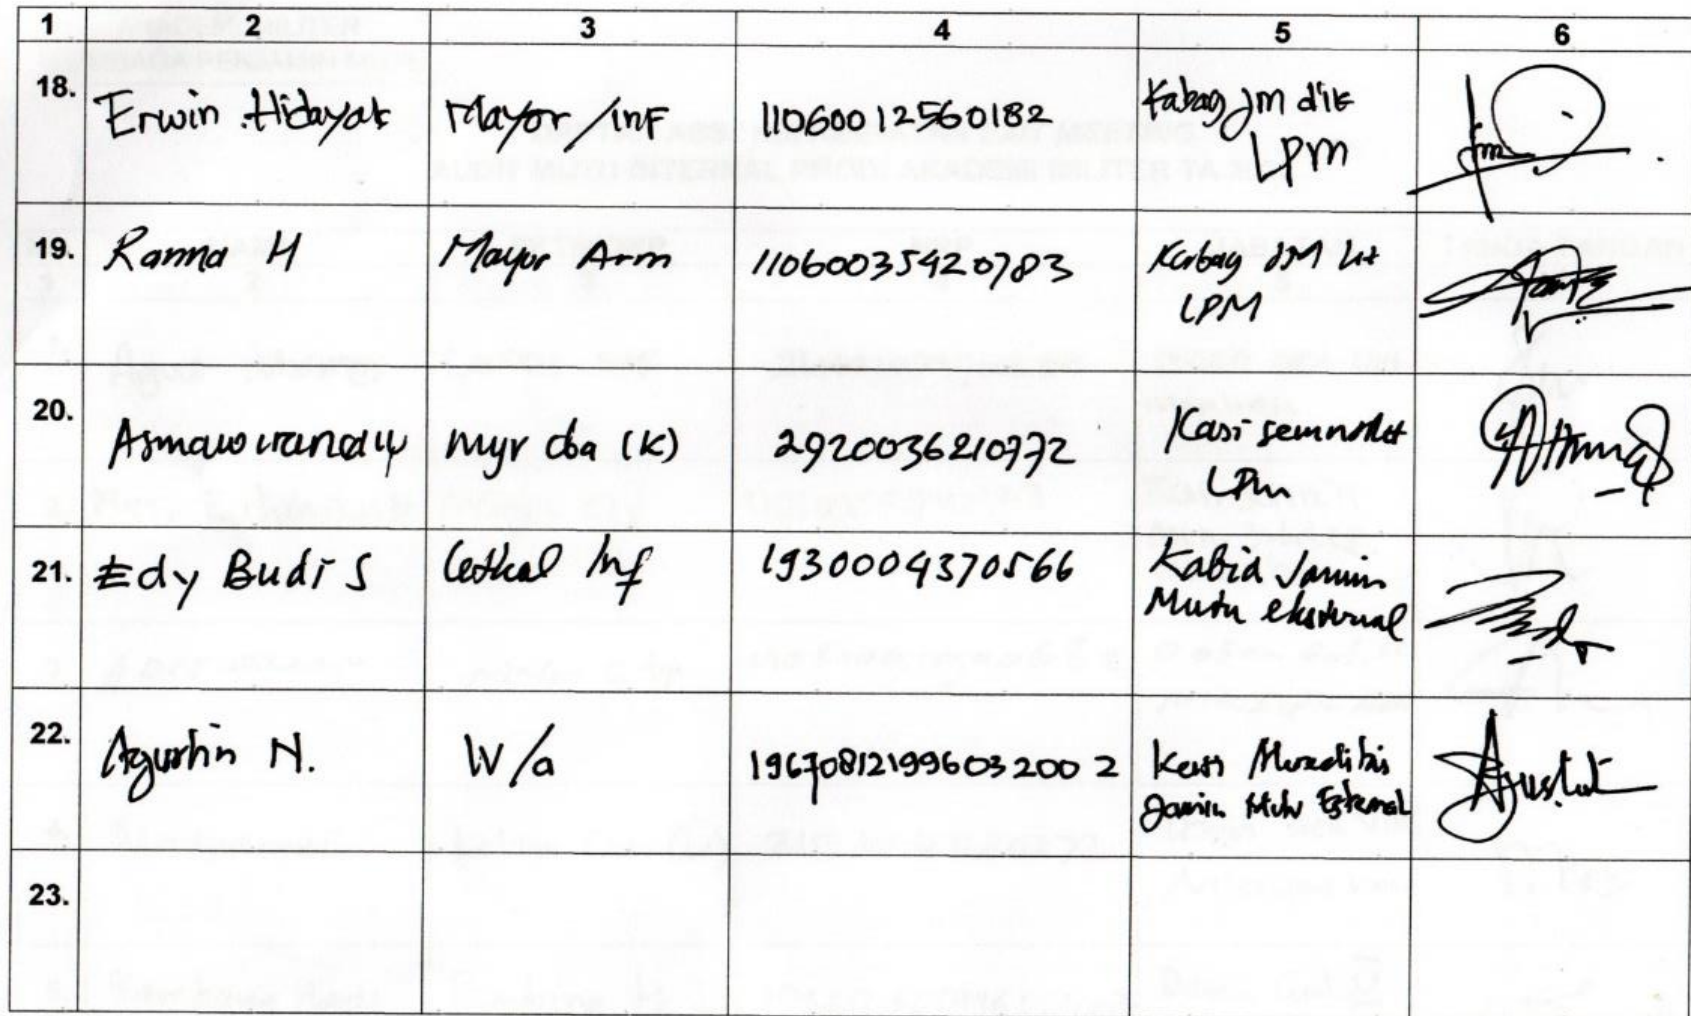 1 2 3 4 5 6
18. Erwin Hidayat Mayor/inf 11060012560182 Kabag Jm dik
LPM
19. Rama H Mayor Arm 11060035420783 Kabag JM Lit
LPM
20. myr cba (K) 2920036210772 Kasi
LPM
21. Edy Budi S Letkol Inf 1930004370566 Kabid Jamin
Mutu eksternal
22. Agustin N. IV/a 196708121996032002 Kasi
Jamin Mutu
23.